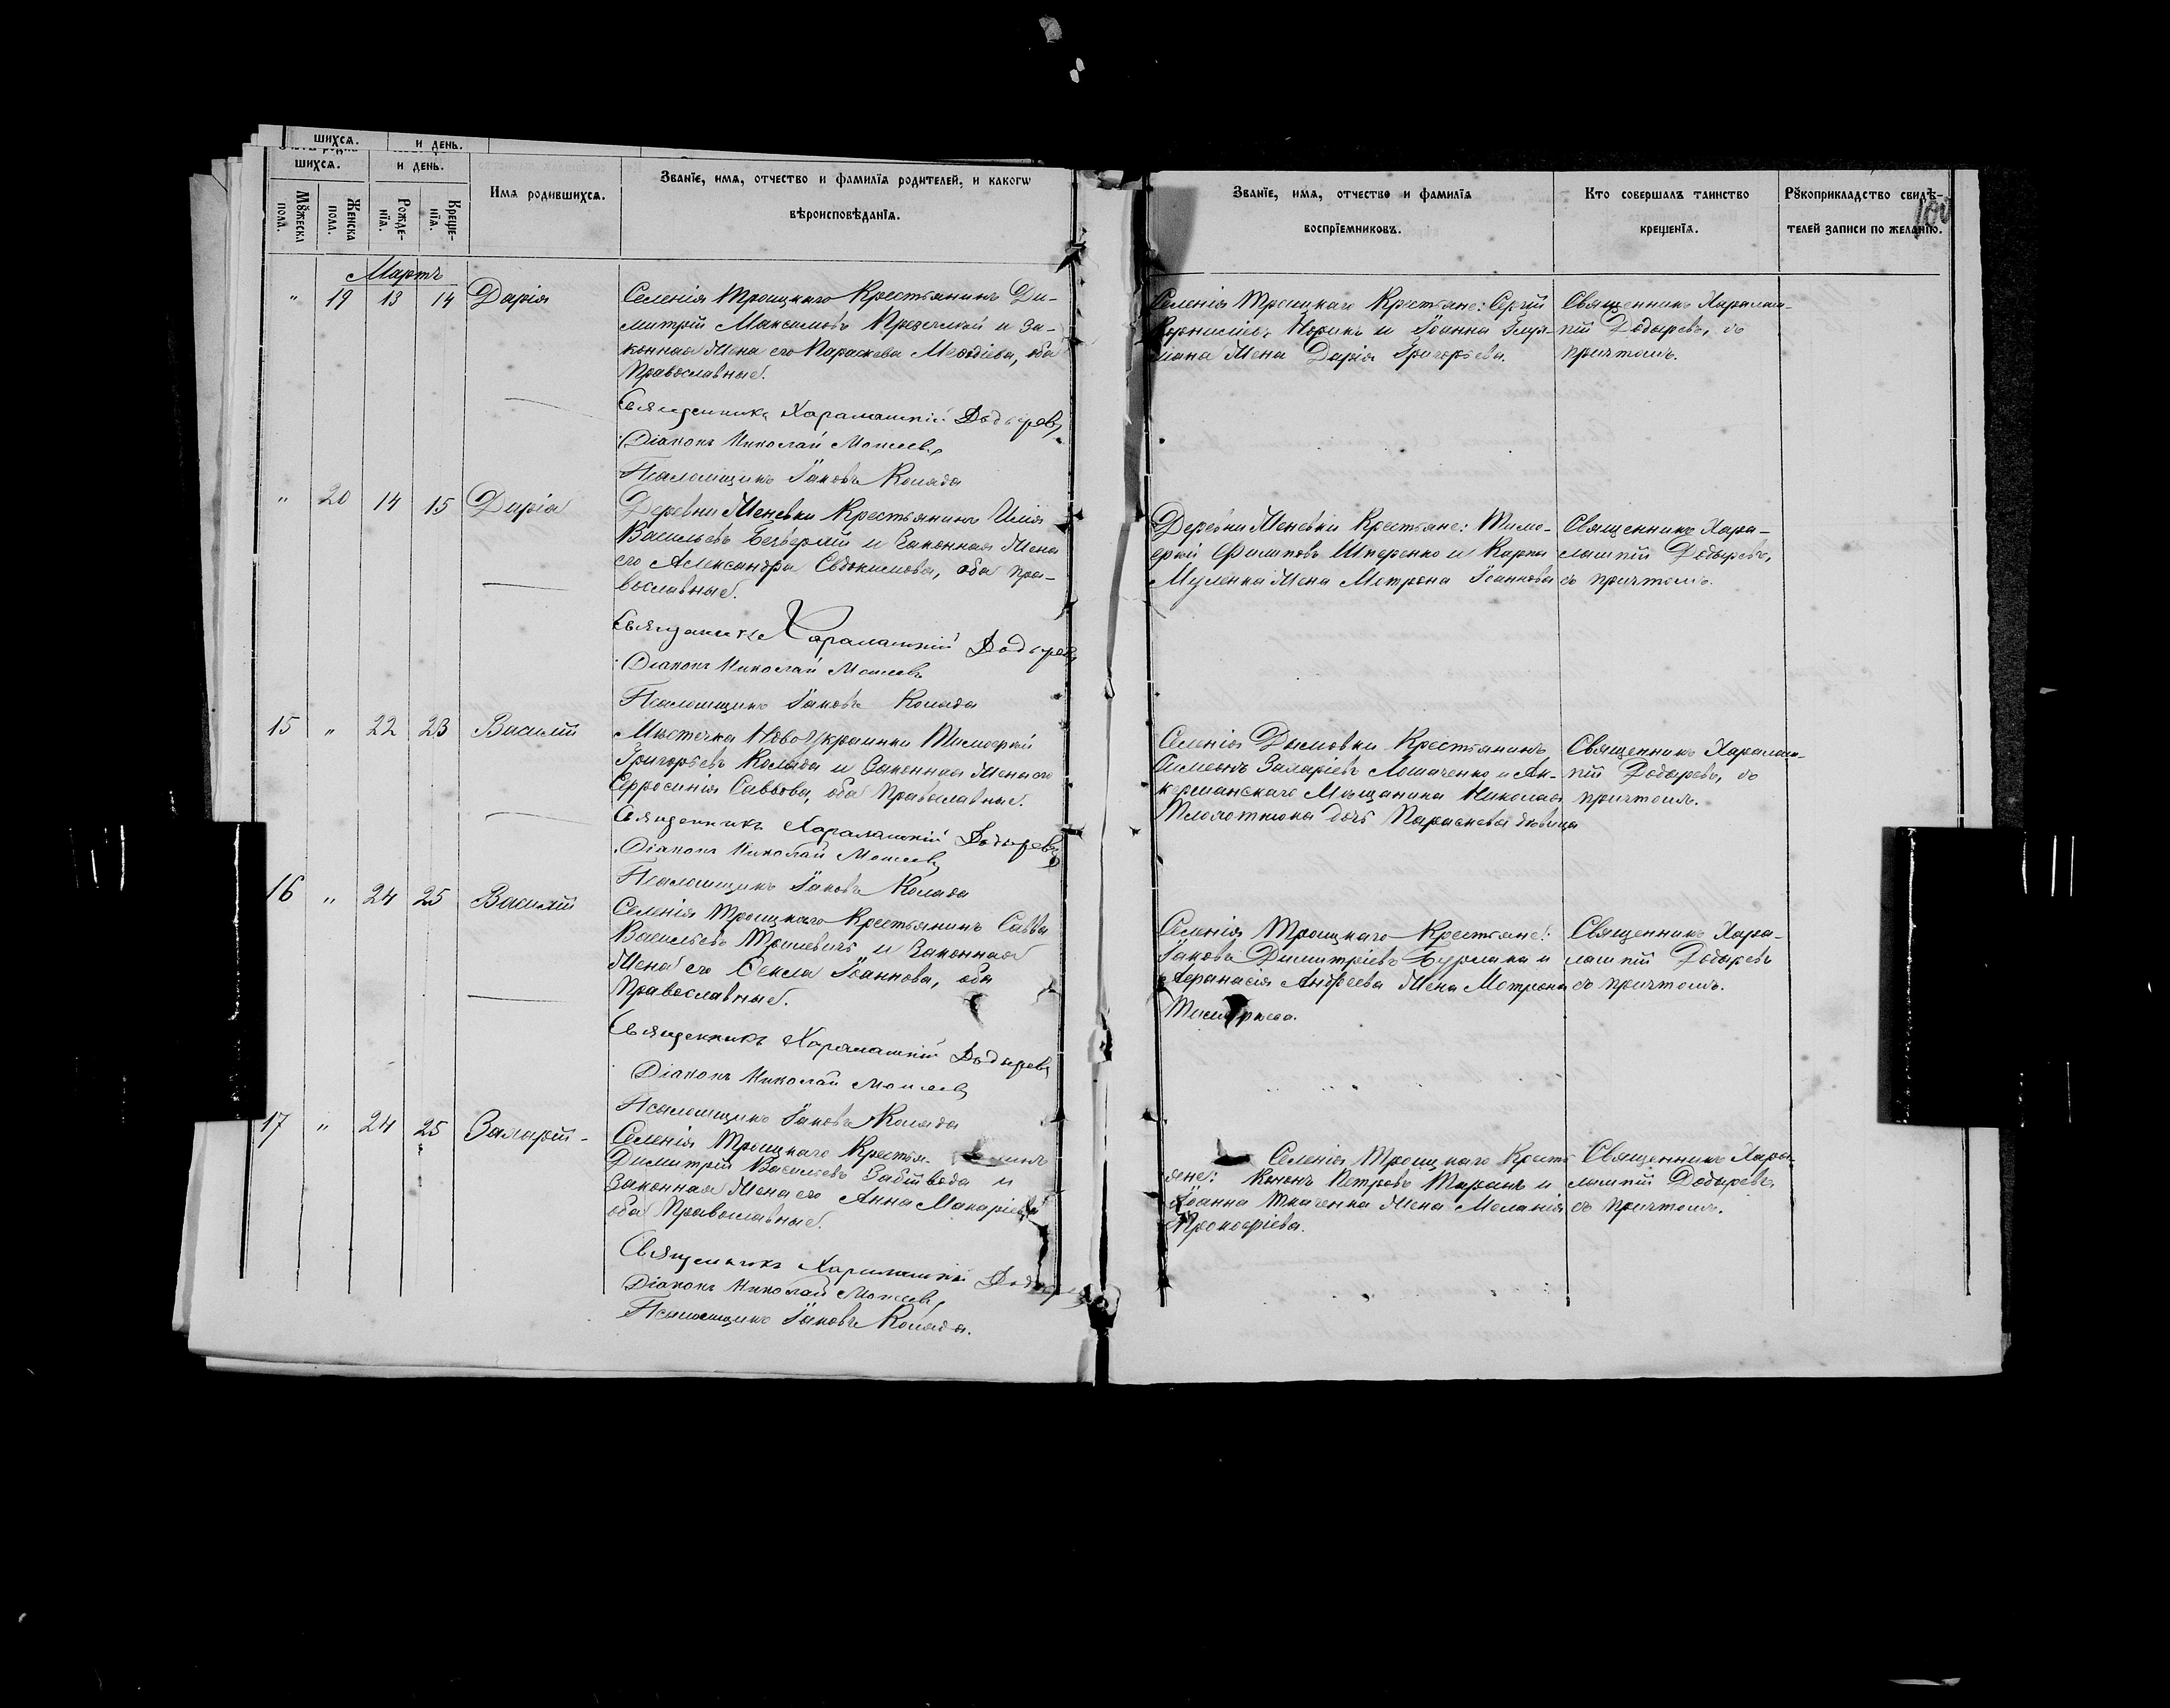 шихсѧ.
и день.
шихсѧ.
и день.
Мꙋжеска пола.
Женска пола.
Рожде-нїѧ.
Креще-нїѧ.
Имѧ родившихсѧ.
Званїе, имѧ, отчество и фамилїѧ родителей, и какогѡ
вѣроисповѣданїѧ.
Званїе, имѧ, отчество и фамилїѧ
воспрїемниковъ.
Кто совершалъ таинство
крещенїѧ.
Рꙋкоприкладство свидѣ-
телей записи по желанїю.
Мартъ
" 19 13 14 Дарія
Селенія Троицкаго Крестьянинъ Ди-
митрій Максимовъ и за-
конная жена его Параскева Меѳодіева, оба
Православные.
Священникъ Харалампій Додыревъ
Діаконъ Николай Моисеевъ
Псаломщикъ Іаковъ Коляда
Селенія Троицкаго Крестьяне: Сергій
Корниліевъ и Іоанна
жена Дарія Григорьева.
Священникъ Харалам-
пій Додыревъ, съ
причтомъ.
" 20 14 15 Дарія
Деревни Меневки Крестьянинъ Илія
Васильевъ и законная жена
его Александра Евдокимова, оба пра-
вославные.
Священникъ Харалампій Додыревъ
Діаконъ Николай Моисеевъ
Псаломщикъ Іаковъ Коляда
Деревни Меневки Крестьяне: Тимо-
фей Филиповъ и Карпа
жена Мотрона Іоаннова
Священникъ Хара-
лампій Додыревъ,
съ причтомъ.
15 " 22 23 Василій
Мѣстечка Ново-Украинки Тимофей
Григорьевъ Коляда и Законная жена его
Евфросинія Саввова, оба Православные.
Священникъ Харалампій Додыревъ
Діаконъ Николай Моисеевъ
Псаломщикъ Іаковъ Коляда
Селенія Дымовки Крестьянинъ
Симеонъ Захаріевъ Лошаченко и Ак-
керманскаго Мѣщанина Николая
дочь Параскева дѣвица
Священникъ Харалам-
пій Додыревъ, съ
причтомъ.
16 " 24 25 Василій
Селенія Троицкаго Крестьянинъ Савва
Васильевъ и Законная
жена его Ѳекла Іоаннова, оба
Православные.
Священникъ Харалампій Додыревъ
Діаконъ Николай Моисеевъ
Псаломщикъ Іаковъ Коляда
Селенія Троицкаго Крестьяне:
Іаковъ Димитріевъ Бурлака и
Афанасія Андреева жена Мотрона
Священникъ Хара-
лампій Додыревъ
съ причтомъ.
17 " 24 25 Захарій
Селенія Троицкаго Крестья-
Димитрій Васильевъ и
Законная жена его Анна Макаріева
оба Православные.
Священникъ Харалампій
Діаконъ Николай Моисеевъ
Псаломщикъ Іаковъ Коляда.
Селенія Троицкаго Кресть
яне: Кононъ Петровъ Таранъ и
Іоанна Ткаченка жена Меланія
Прокофіева.
Священникъ Хара-
лампій Додыревъ
съ причтомъ.